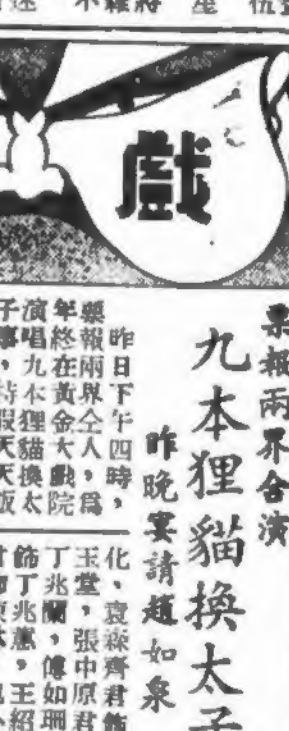 戲
票報兩界合演
九本狸貓換太子
昨晚宴請趙如泉
昨日下午四時，
票報兩界仝人，爲
年終在黃金大戲院
演唱九本狸貓換太
子事，特假天天飯
化、袁森齊君飾
玉堂，張中原君
丁兆蘭，傅如珊
飾丁兆蕙，王紹